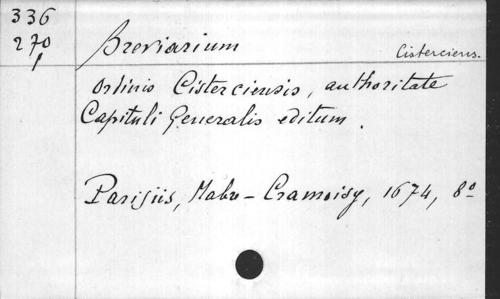 336
270
1
Breviarium
Cisterciens.
Ordinis Cisterciensis, authoritate
Capituli Generalis editum.
Parisiis, Mabre-Cramoisy, 1674, 8º